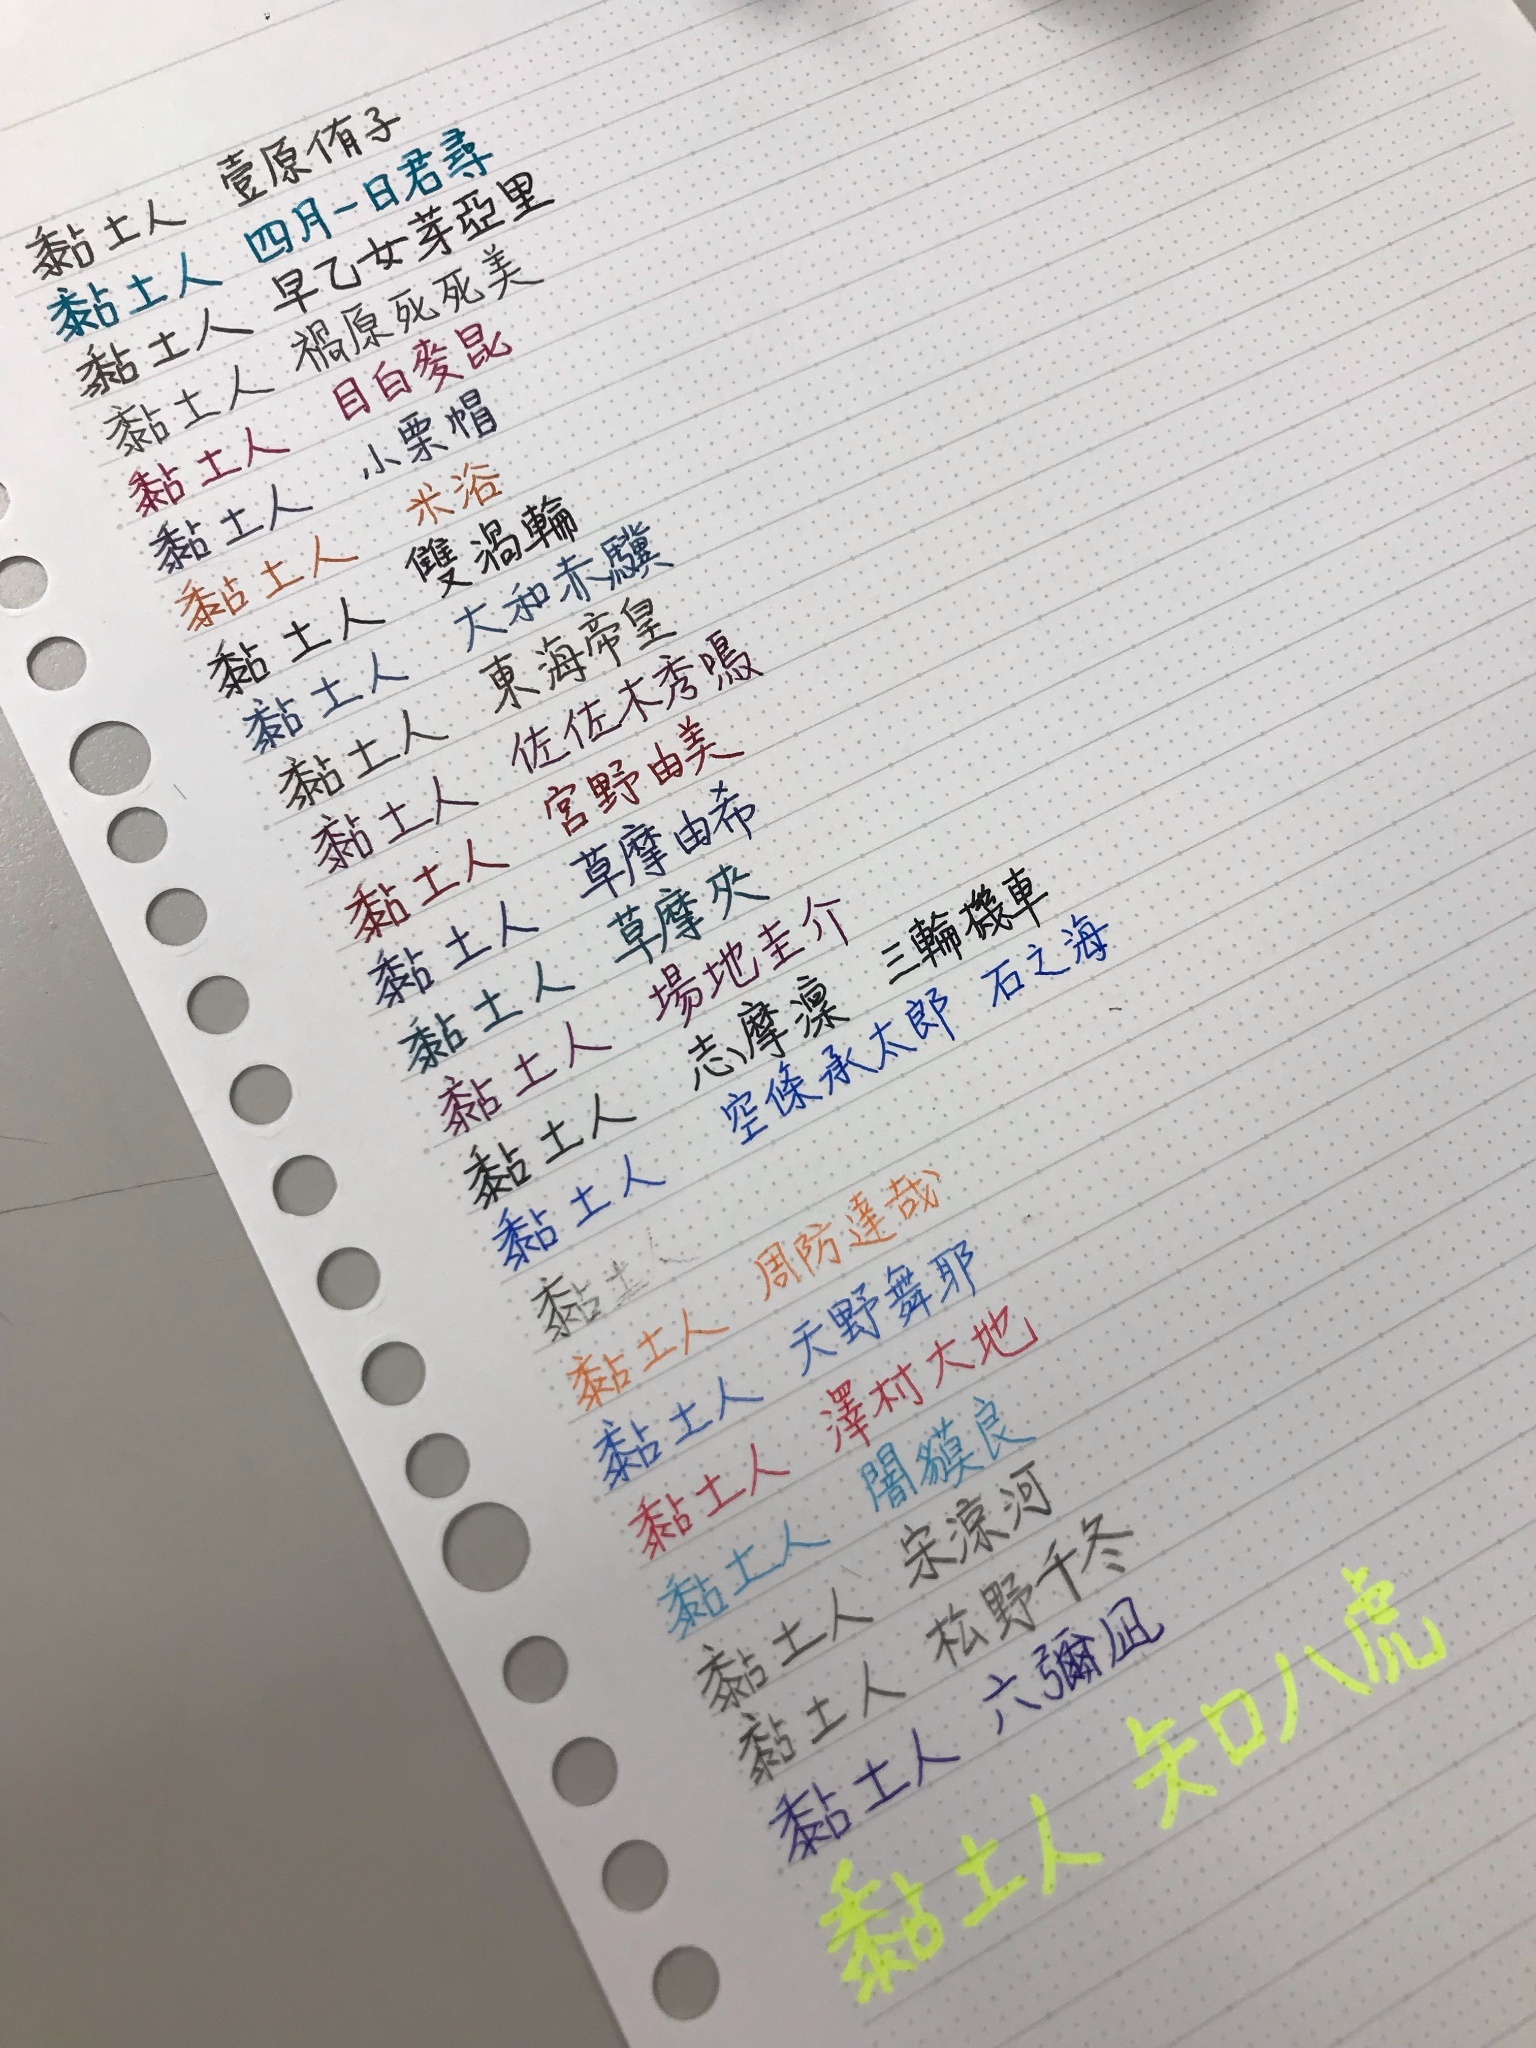 黏土人 壹原侑子
黏土人 四月一日君尋
黏土人 早乙女芽亞里
黏土人 禍原死死美
黏土人 目白麥昆
黏土人 小栗帽
黏土人 米浴
黏土人 雙渦輪
黏土人 大和赤驥
黏土人 東海帝皇
黏土人 佐佐木秀鳴
黏土人 宮野由美
黏土人 草摩由希
黏土人 草摩夾
黏土人 場地圭介
黏土人 志摩凜 三輪機車
黏土人 空條承太郎 石之海
黏土人
黏土人 周防達哉
黏土人 天野舞耶
黏土人 澤村大地
黏土人 闇貘良
黏土人 宋涼河
黏土人 松野千冬
黏土人 六彌凪
黏土人 矢口八虎